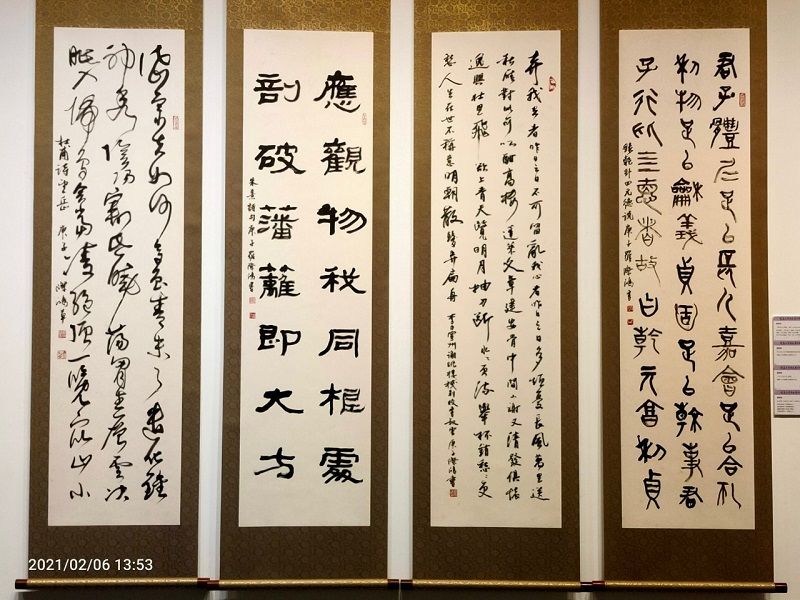 君子體仁足以長人嘉會足以合礼
利物足以龢義貞固足以幹事君
子行此亖惪者故曰乾元亨利貞
錄乾卦四元德說 庚子 羅際鴻書
弃我去者昨日之日不可留亂我心者昨日之日多煩憂長風萬里送
秋雁對此可以酣高樓蓬萊文章建安骨中間小謝又清發俱懷
逸興壯思飛欲上青天覽明月抽刀斷水水更流舉杯銷愁愁更
愁人生在世不稱意明朝散髮弄扁舟 李白宣州謝朓樓餞別校書叔雲 庚子際鴻書
應觀物我同根處
剖破藩籬即大方
朱熹詩句 庚子 羅際鴻書
岱宗夫如何齊魯青未了造化鍾
神秀陰陽割昏曉蕩胸生層雲決
眥入歸鳥會當凌絕頂一覽众山小
杜甫詩望岳 庚子 際鴻草
2021/02/06 13:53